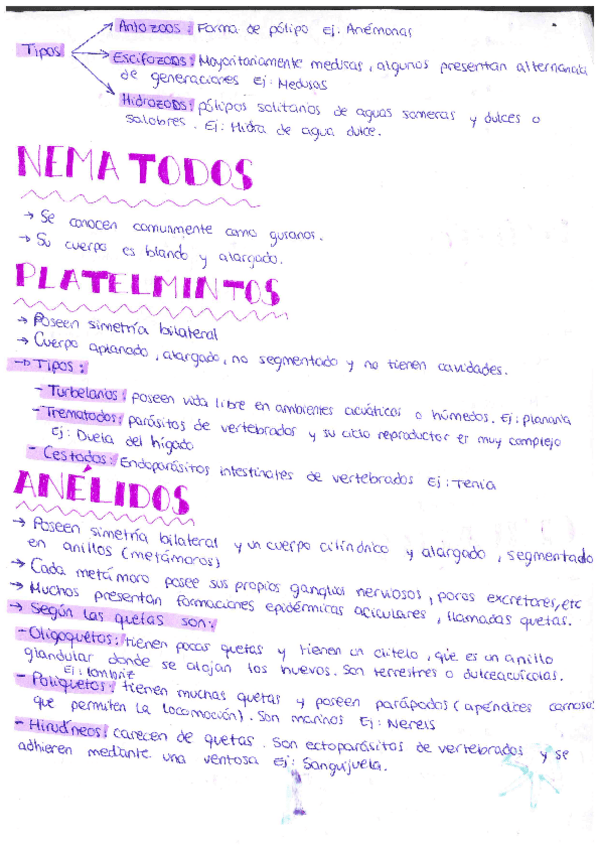 Antozoos: Forma de pólipo Ej: Anémonas
Tipos
Escifozoos: Mayoritariamente medusas, algunos presentan alternancia
de generaciones Ej: Medusas
Hidrozoos: pólipos solitarios de aguas someras y dulces o
salobres. Ej: Hidra de agua dulce.
NEMATODOS
→ Se conocen comunmente como gusanos.
→ Su cuerpo es blando y alargado.
PLATELMINTOS
→ Poseen simetría bilateral
→ Cuerpo aplanado, alargado, no segmentado y no tienen cavidades.
→ Tipos:
- Turbelarios: poseen vida libre en ambientes acuáticos o húmedos. Ej: planaria
- Trematodos: parásitos de vertebrados y su ciclo reproductor es muy complejo
Ej: Duela del hígado
- Cestodos: Endoparásitos intestinales de vertebrados Ej: Tenia
ANÉLIDOS
→ Poseen simetría bilateral y un cuerpo cilíndrico y alargado, segmentado
en anillos (metámoros)
→ Cada metámoro posee sus propios ganglios nerviosos, poros excretores, etc
→ Muchos presentan formaciones epidérmicas aciculares, llamadas quetas.
→ Según las quetas son:
- Oligoquetos: tienen pocas quetas y tienen un clitelo, que es un anillo
glandular donde se alojan los huevos. Son terrestres o dulceacuícolas.
Ej: lombriz
- Poliquetos: tienen muchas quetas y poseen parápodos (apéndices carnosos
que permiten la locomoción). Son marinos Ej: Nereis
- Hirudíneos: carecen de quetas. Son ectoparásitos de vertebrados y se
adhieren mediante una ventosa Ej: Sanguijuela.